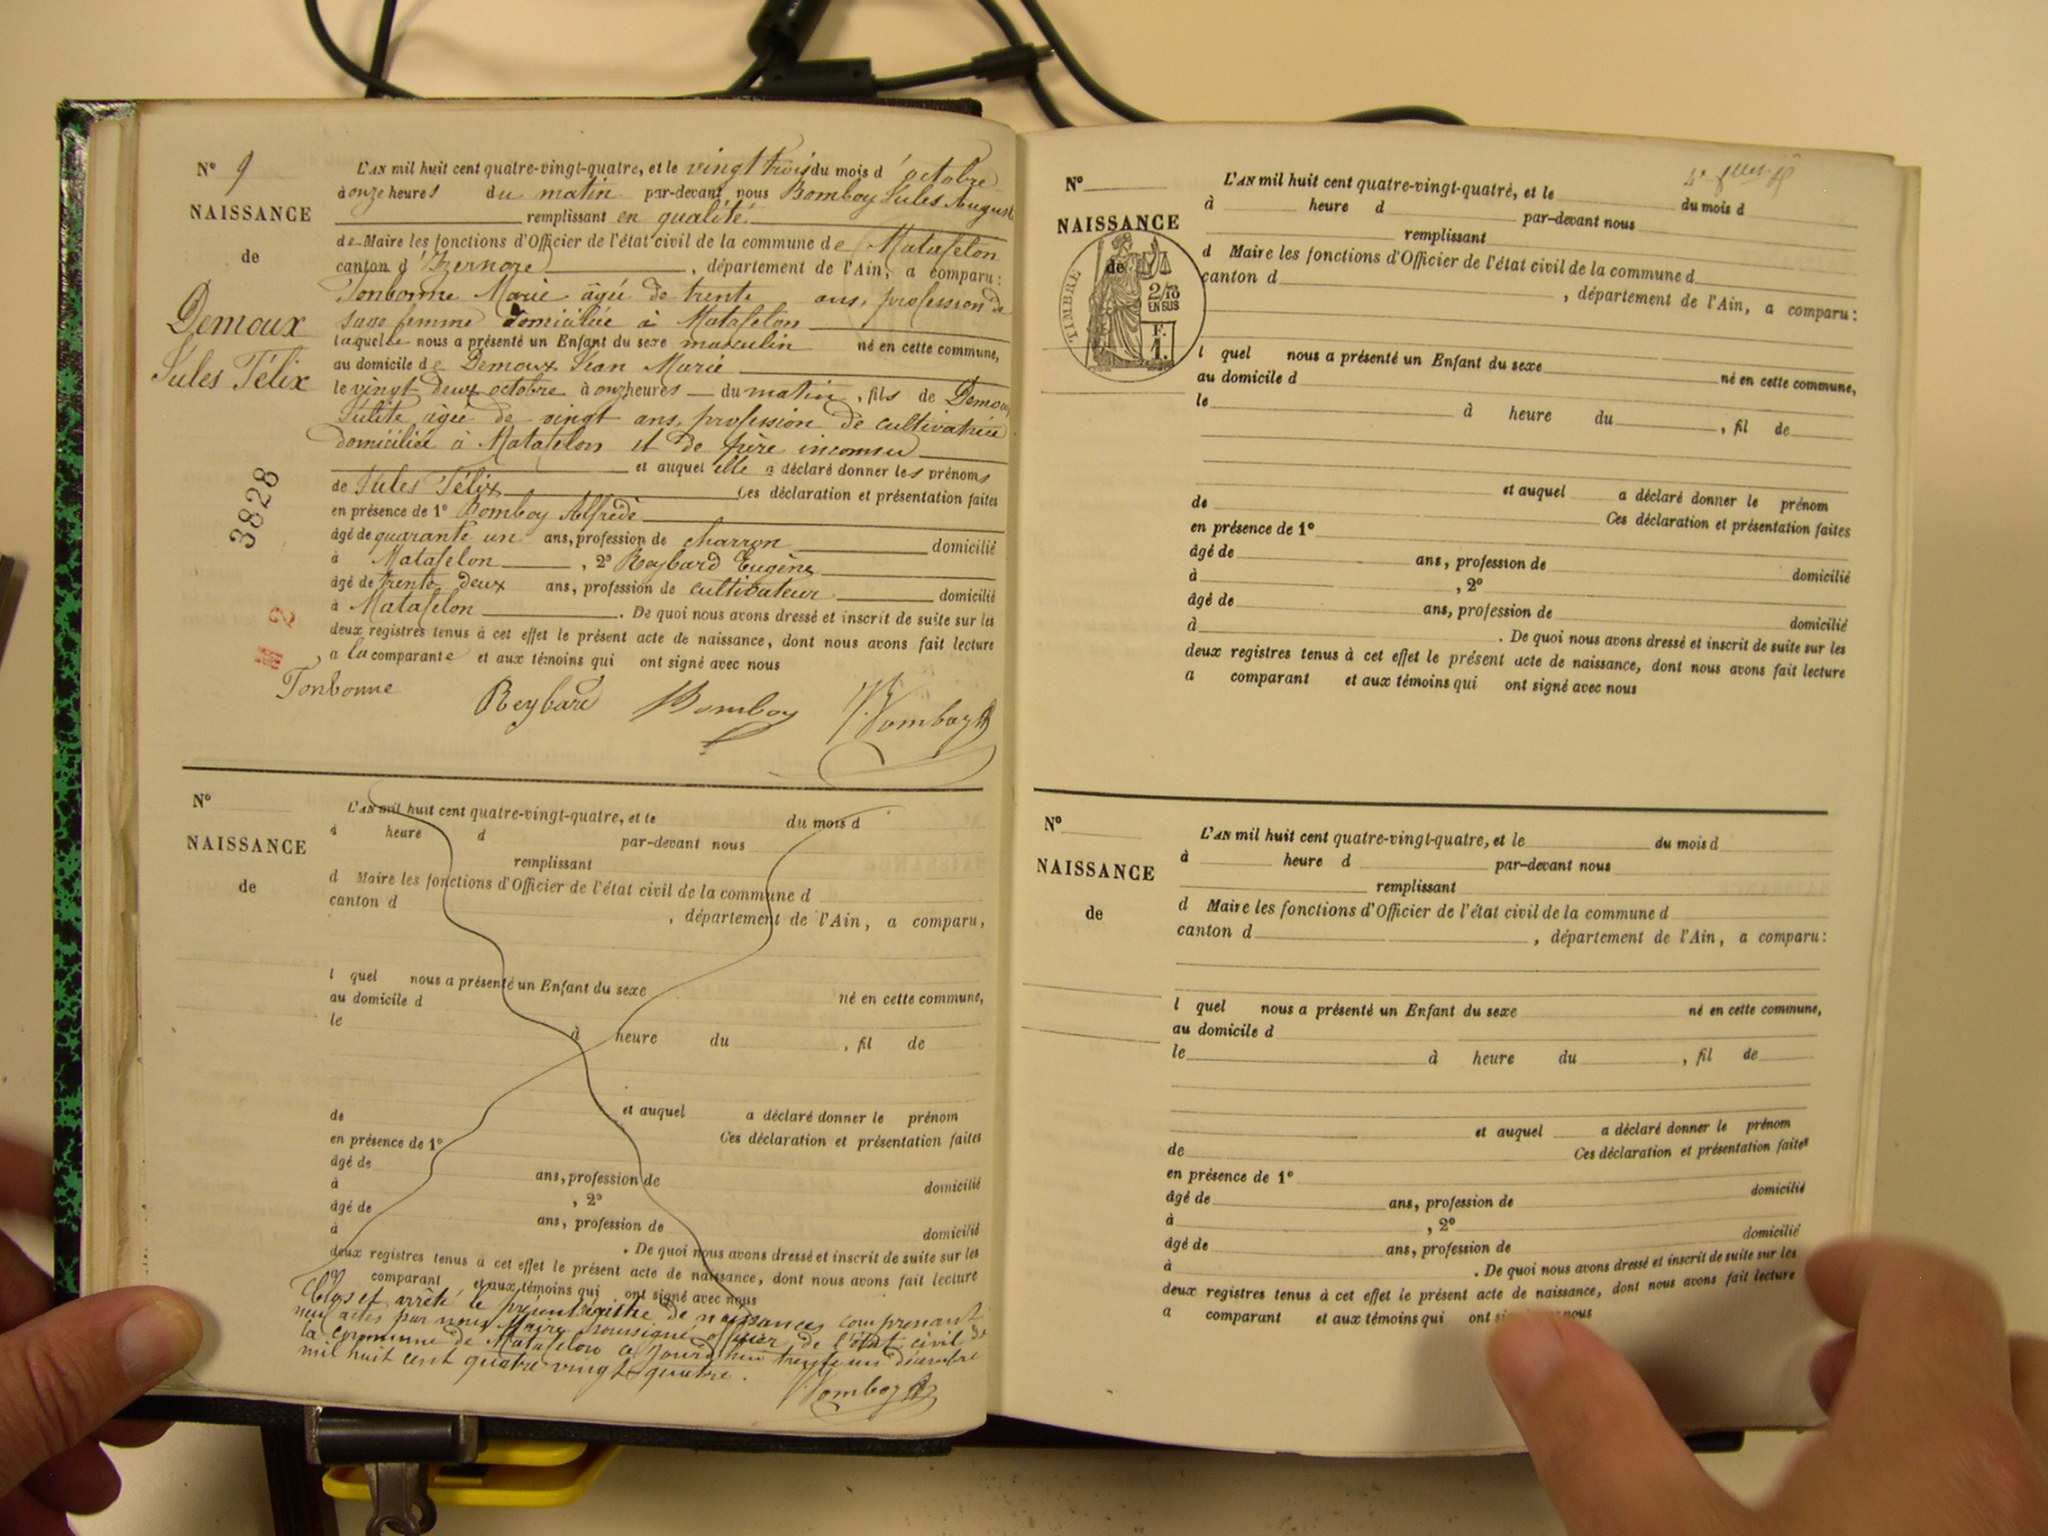 N° 9
NAISSANCE
de
Demoux
Jules Félix
3828
L'AN mil huit cent quatre-vingt-quatre, et le vingt trois du mois d'octobre
à onze heures du matin par-devant nous Bomboy Jules August
remplissant en qualité
de Maire les fonctions d'Officier de l'état civil de la commune de Matafelon
canton d'Izernore, département de l'Ain, a comparu:
Tonbonne Marie âgée de trente ans, profession de
sage femme domiciliée à Matafelon
laquelle nous a présenté un Enfant du sexe masculin né en cette commune,
au domicile de Demoux Jean Marie
le vingt deux octobre à onze heures du matin, fils de Demoux
âgée de vingt ans, profession de cultivatrice
domiciliée à Matafelon et de père inconnu
et auquel elle a déclaré donner les prénoms
de Jules Félix Ces déclaration et présentation faites
en présence de 1° Bomboy Alfred
âgé de quarante un ans, profession de charron domicilié
à Matafelon, 2° Reybard Eugène
âgé de trente deux ans, profession de cultivateur domicilié
à Matafelon. De quoi nous avons dressé et inscrit de suite sur les
deux registres tenus à cet effet le présent acte de naissance, dont nous avons fait lecture
a la comparante et aux témoins qui ont signé avec nous
Tonbonne Reybard Bomboy Bomboy
N°
NAISSANCE
de
L'AN mil huit cent quatre-vingt-quatre, et le du mois d
à heure d par-devant nous
remplissant
d Maire les fonctions d'Officier de l'état civil de la commune d
canton d , département de l'Ain, a comparu,
l quel nous a présenté un Enfant du sexe
au domicile d né en cette commune,
le à heure du , fil de
et auquel a déclaré donner le prénom
de Ces déclaration et présentation faites
en présence de 1°
âgé de ans, profession de
à domicilié
, 2°
âgé de ans, profession de
à domicilié
. De quoi nous avons dressé et inscrit de suite sur les
deux registres tenus à cet effet le présent acte de naissance, dont nous avons fait lecture
a comparant et aux témoins qui ont signé avec nous
Clos et arrêté le présent registre de naissances comprenant
neuf actes par nous Maire soussigné officier de l'état civil de
la commune de Matafelon ce jourd'hui trente un décembre
mil huit cent quatre vingt quatre.
Bomboy
N°
NAISSANCE
de
TIMBRE
2/10
EN SUS
F.
1.
L'AN mil huit cent quatre-vingt-quatre, et le du mois d
à heure d par-devant nous
remplissant
d Maire les fonctions d'Officier de l'état civil de la commune d
canton d , département de l'Ain, a comparu:
l quel nous a présenté un Enfant du sexe
au domicile d né en cette commune,
le à heure du , fil de
et auquel a déclaré donner le prénom
de Ces déclaration et présentation faites
en présence de 1°
âgé de ans, profession de domicilié
à , 2°
âgé de ans, profession de domicilié
à . De quoi nous avons dressé et inscrit de suite sur les
deux registres tenus à cet effet le présent acte de naissance, dont nous avons fait lecture
a comparant et aux témoins qui ont signé avec nous
N°
NAISSANCE
de
L'AN mil huit cent quatre-vingt-quatre, et le du mois d
à heure d par-devant nous
remplissant
d Maire les fonctions d'Officier de l'état civil de la commune d
canton d , département de l'Ain, a comparu:
l quel nous a présenté un Enfant du sexe né en cette commune,
au domicile d
le à heure du , fil de
et auquel a déclaré donner le prénom
de Ces déclaration et présentation faites
en présence de 1°
âgé de ans, profession de domicilié
à , 2°
âgé de ans, profession de domicilié
à . De quoi nous avons dressé et inscrit de suite sur les
deux registres tenus à cet effet le présent acte de naissance, dont nous avons fait lecture
a comparant et aux témoins qui ont nous